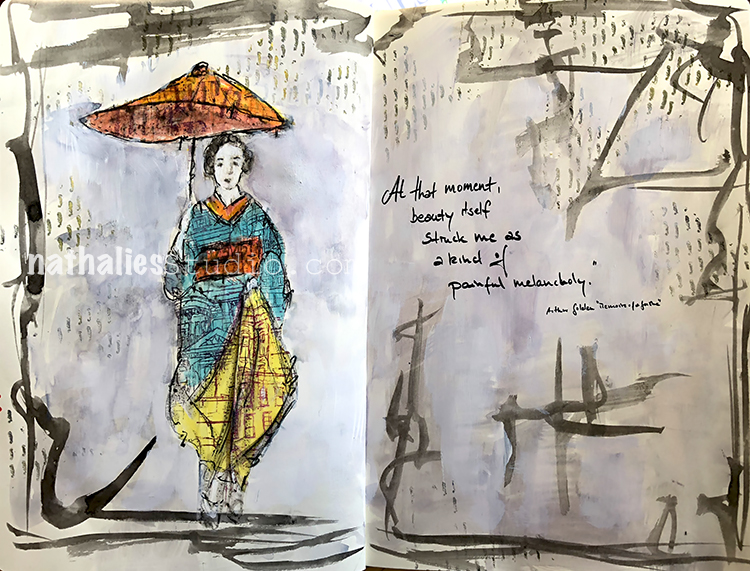 nathaliesstudio.com
At that moment,
beauty itself
struck me as
a kind of
painful melancholy."
Arthur Golden "Memoirs of a Geisha"